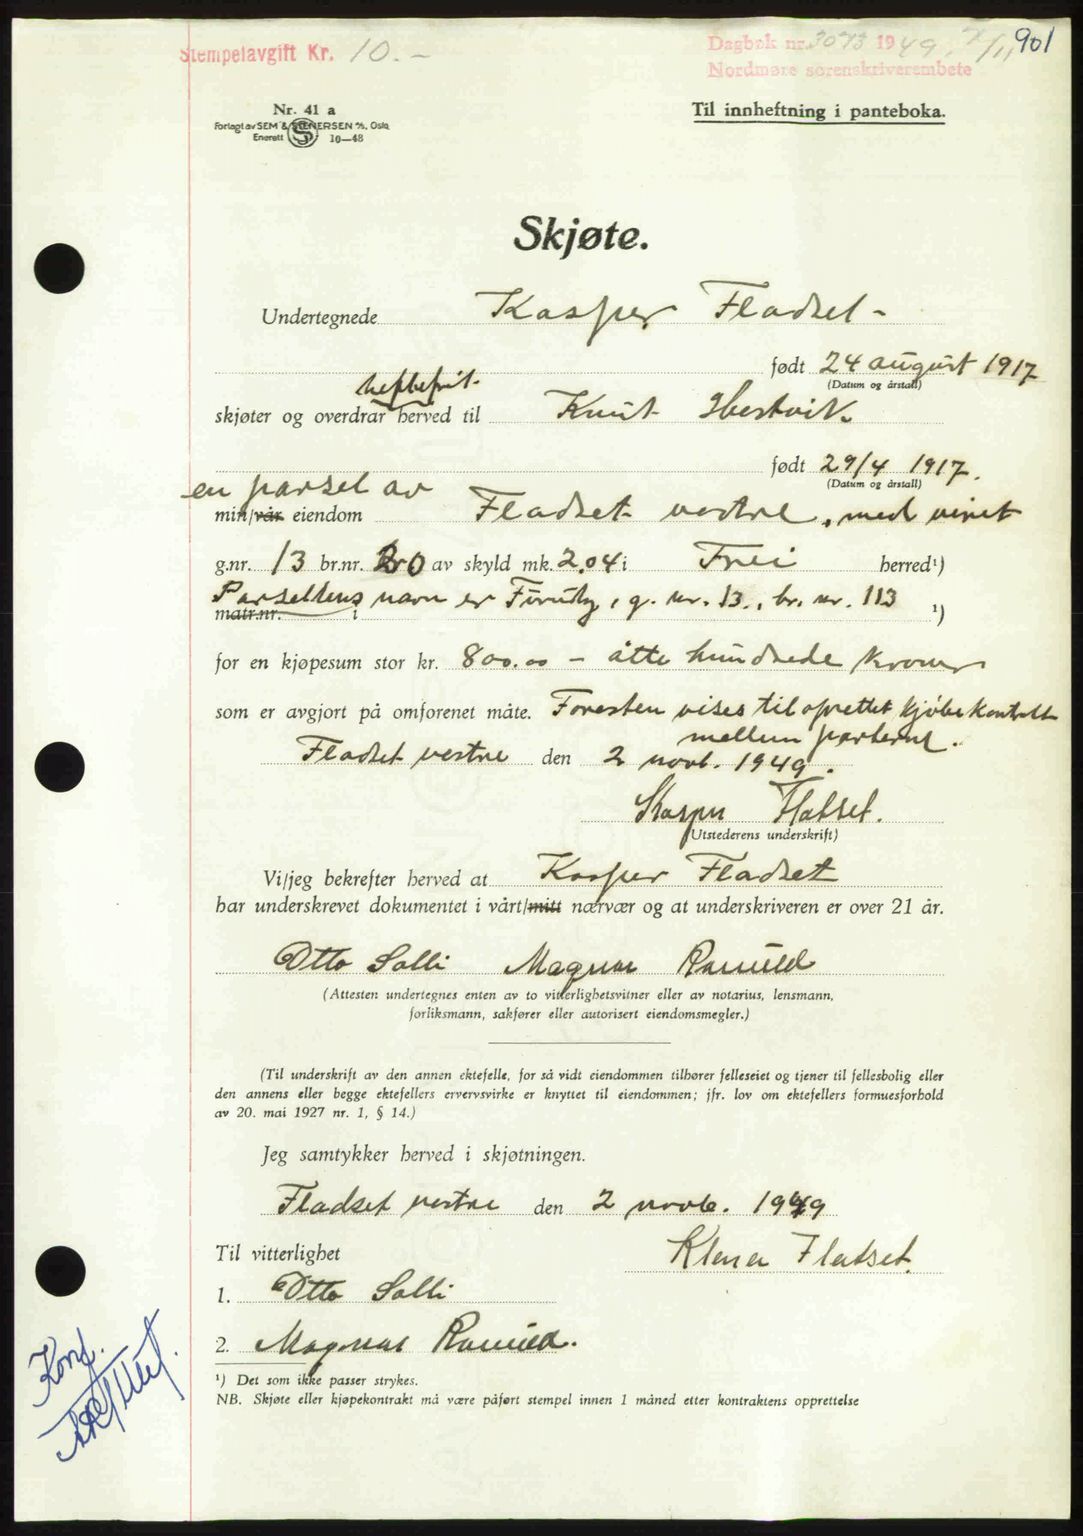 Stempelavgift Kr. 10.-
Dagbok nr. 3073 1949. 7/11 901
Nordmøre sorenskriverembete
Nr. 41 a
Forlagt av SEM & STENERSEN A/S, Oslo
Enerett S 10—48
Til innheftning i panteboka.
Skjøte.
Undertegnede Kasper Fladset -
født 24 august 1917
(Datum og årstall)
heftefrit.
skjøter og overdrar herved til Knut
født 29/4 1917.
(Datum og årstall)
en parsel av
min/vår eiendom Fladset vestre, med
g.nr. 13 br.nr. 20 av skyld mk. 2.04 i Frei herred¹)
Parsellens navn er Furuly, g. nr. 13., br. nr. 113
matr.nr. i ¹)
for en kjøpesum stor kr. 800.00 - åtte hundrede kroner
som er avgjort på omforenet måte. Foresten vises til oprettet kjøbekontrakt
mellem parterne.
Fladset vestre den 2 novb. 1949.
Kasper Flatset.
(Utstederens underskrift)
Vi/jeg bekrefter herved at Kasper Fladset
har underskrevet dokumentet i vårt/mitt nærvær og at underskriveren er over 21 år.
Otto Solli Magnar
(Attesten undertegnes enten av to vitterlighetsvitner eller av notarius, lensmann,
forliksmann, sakfører eller autorisert eiendomsmegler.)
(Til underskrift av den annen ektefelle, for så vidt eiendommen tilhører felleseiet og tjener til fellesbolig eller
den annens eller begge ektefellers ervervsvirke er knyttet til eiendommen; jfr. lov om ektefellers formuesforhold
av 20. mai 1927 nr. 1, § 14.)
Jeg samtykker herved i skjøtningen.
Fladset vestre den 2 novb. 1949
Til vitterlighet Flatset.
1. Otto Solli
2. Magnar
¹) Det som ikke passer strykes.
NB. Skjøte eller kjøpekontrakt må være påført stempel innen 1 måned etter kontraktens opprettelse
Konf.